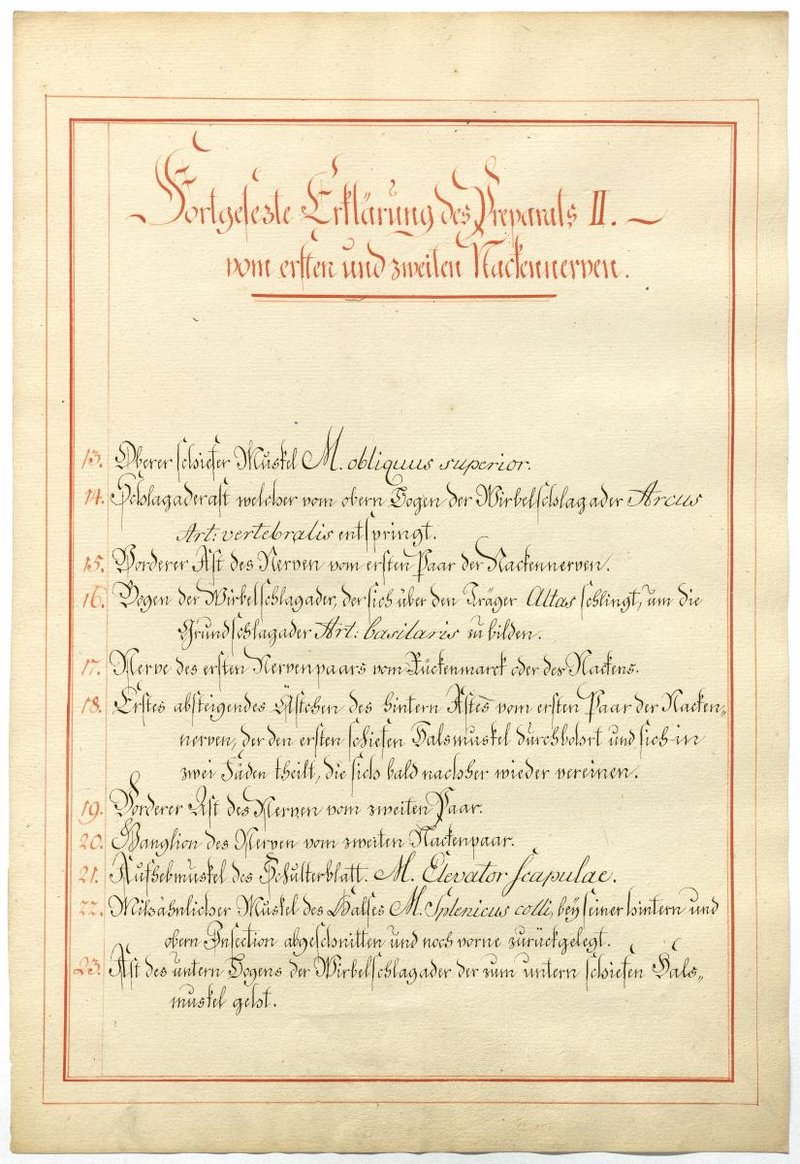 Fortgesezte Erklärung des Preparats II.
vom ersten und zweiten Nackennerven.
13. Oberer schiefer Muskel M. obliquus superior.
14. Schlagaderast welcher vom obern Bogen der Wirbelschlagader Arcus
Art: vertebralis entspringt.
15. Vorderer Ast des Nerven vom ersten Paar der Nackennerven.
16. Bogen der Wirbelschlagader, der sich über den Träger Altas schlingt, um die
Grundschlagader Art: basilaris zu bilden.
17. Nerve des ersten Nervenpaars vom Rückenmarck oder des Nackens.
18. Erstes absteigendes Ästchen des hintern Astes vom ersten Paar der Nacken„
nerven, der den ersten schiefen Halsmuskel durchbohrt und sich in
zwei Fäden theilt, die sich bald nachher wieder vereinen.
19. Vorderer Ast des Nerven vom zweiten Paar.
20. Ganglion des Nerven vom zweiten Nackenpaar.
21. Aufhebmuskel des Schulterblatt. M. Elevator scapulae.
22. Milzähnlicher Muskel des Halses M. Splenicus colli, bey seiner hintern und
obern Insection abgeschnitten und noch vorne zurückgelegt.
23. Ast des untern Bogens der Wirbelschlagader der zum untern schiefen Hals„
muskel geht.